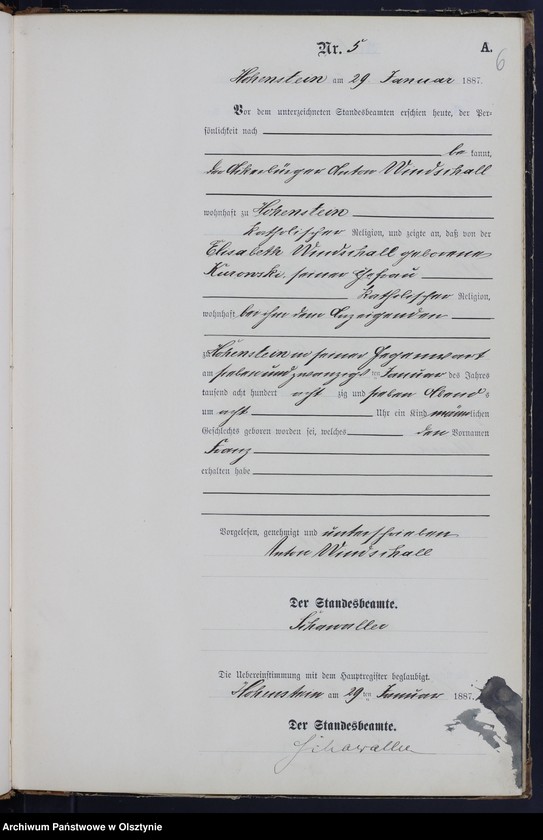 Nr. 5
A.
6
Hohenstein am 29 Januar 1887.
Vor dem unterzeichneten Standesbeamten erschien heute, der Per-
sönlichkeit nach
be kannt,
der Ackerbürger Anton Windschall
wohnhaft zu Hohenstein
katholischer Religion, und zeigte an, daß von der
Elisabeth Windschall geborene
Kurowski, seiner Ehefrau
katholischer Religion,
wohnhaft bei ihm dem Anzeigenden
zu Hohenstein in seiner Gegenwart
am siebenundzwanzigsten Januar des Jahres
tausend acht hundert acht zig und sieben Abends
um acht Uhr ein Kind männlichen
Geschlechts geboren worden sei, welches den Vornamen
Franz
erhalten habe
Vorgelesen, genehmigt und unterschrieben
Anton Windschall
Der Standesbeamte.
Die Uebereinstimmung mit dem Hauptregister beglaubigt.
Hohenstein am 29ten Januar 1887.
Der Standesbeamte.
Archiwum Państwowe w Olsztynie